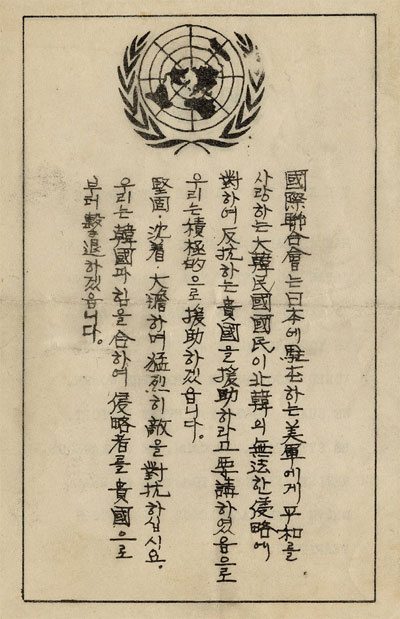 國際聯合會는 日本에 駐在하는 美軍에게 平和를
사랑하는 大韓民國國民이 北韓의 無法한 侵略에
對하여 反抗하는 貴國을 援助하라고 要請하였음으로
우리는 積極的으로 援助하겠읍니다.
堅固·沈着·大膽하며 猛烈히 敵을 對抗하십시요.
우리는 韓國과 힘을 合하여 侵略者를 貴國으로
부터 擊退하겠읍니다.